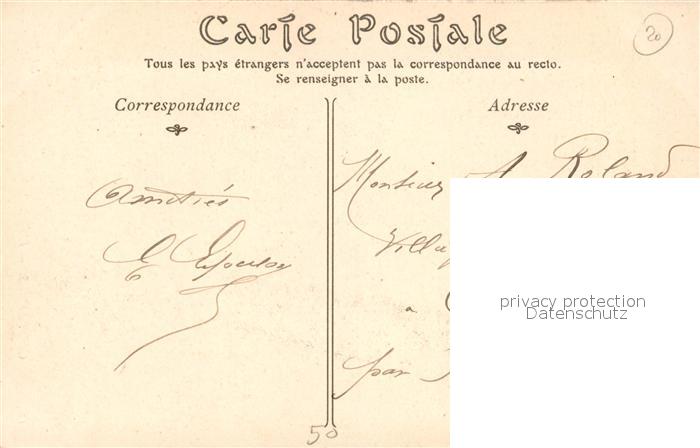 Carte Postale
20
Tous les pays étrangers n'acceptent pas la correspondance au recto.
Se renseigner à la poste.
Correspondance
Adresse
Monsieur A. Roland
Amitiés
Villa
E
à
privacy protection
Datenschutz
par
50